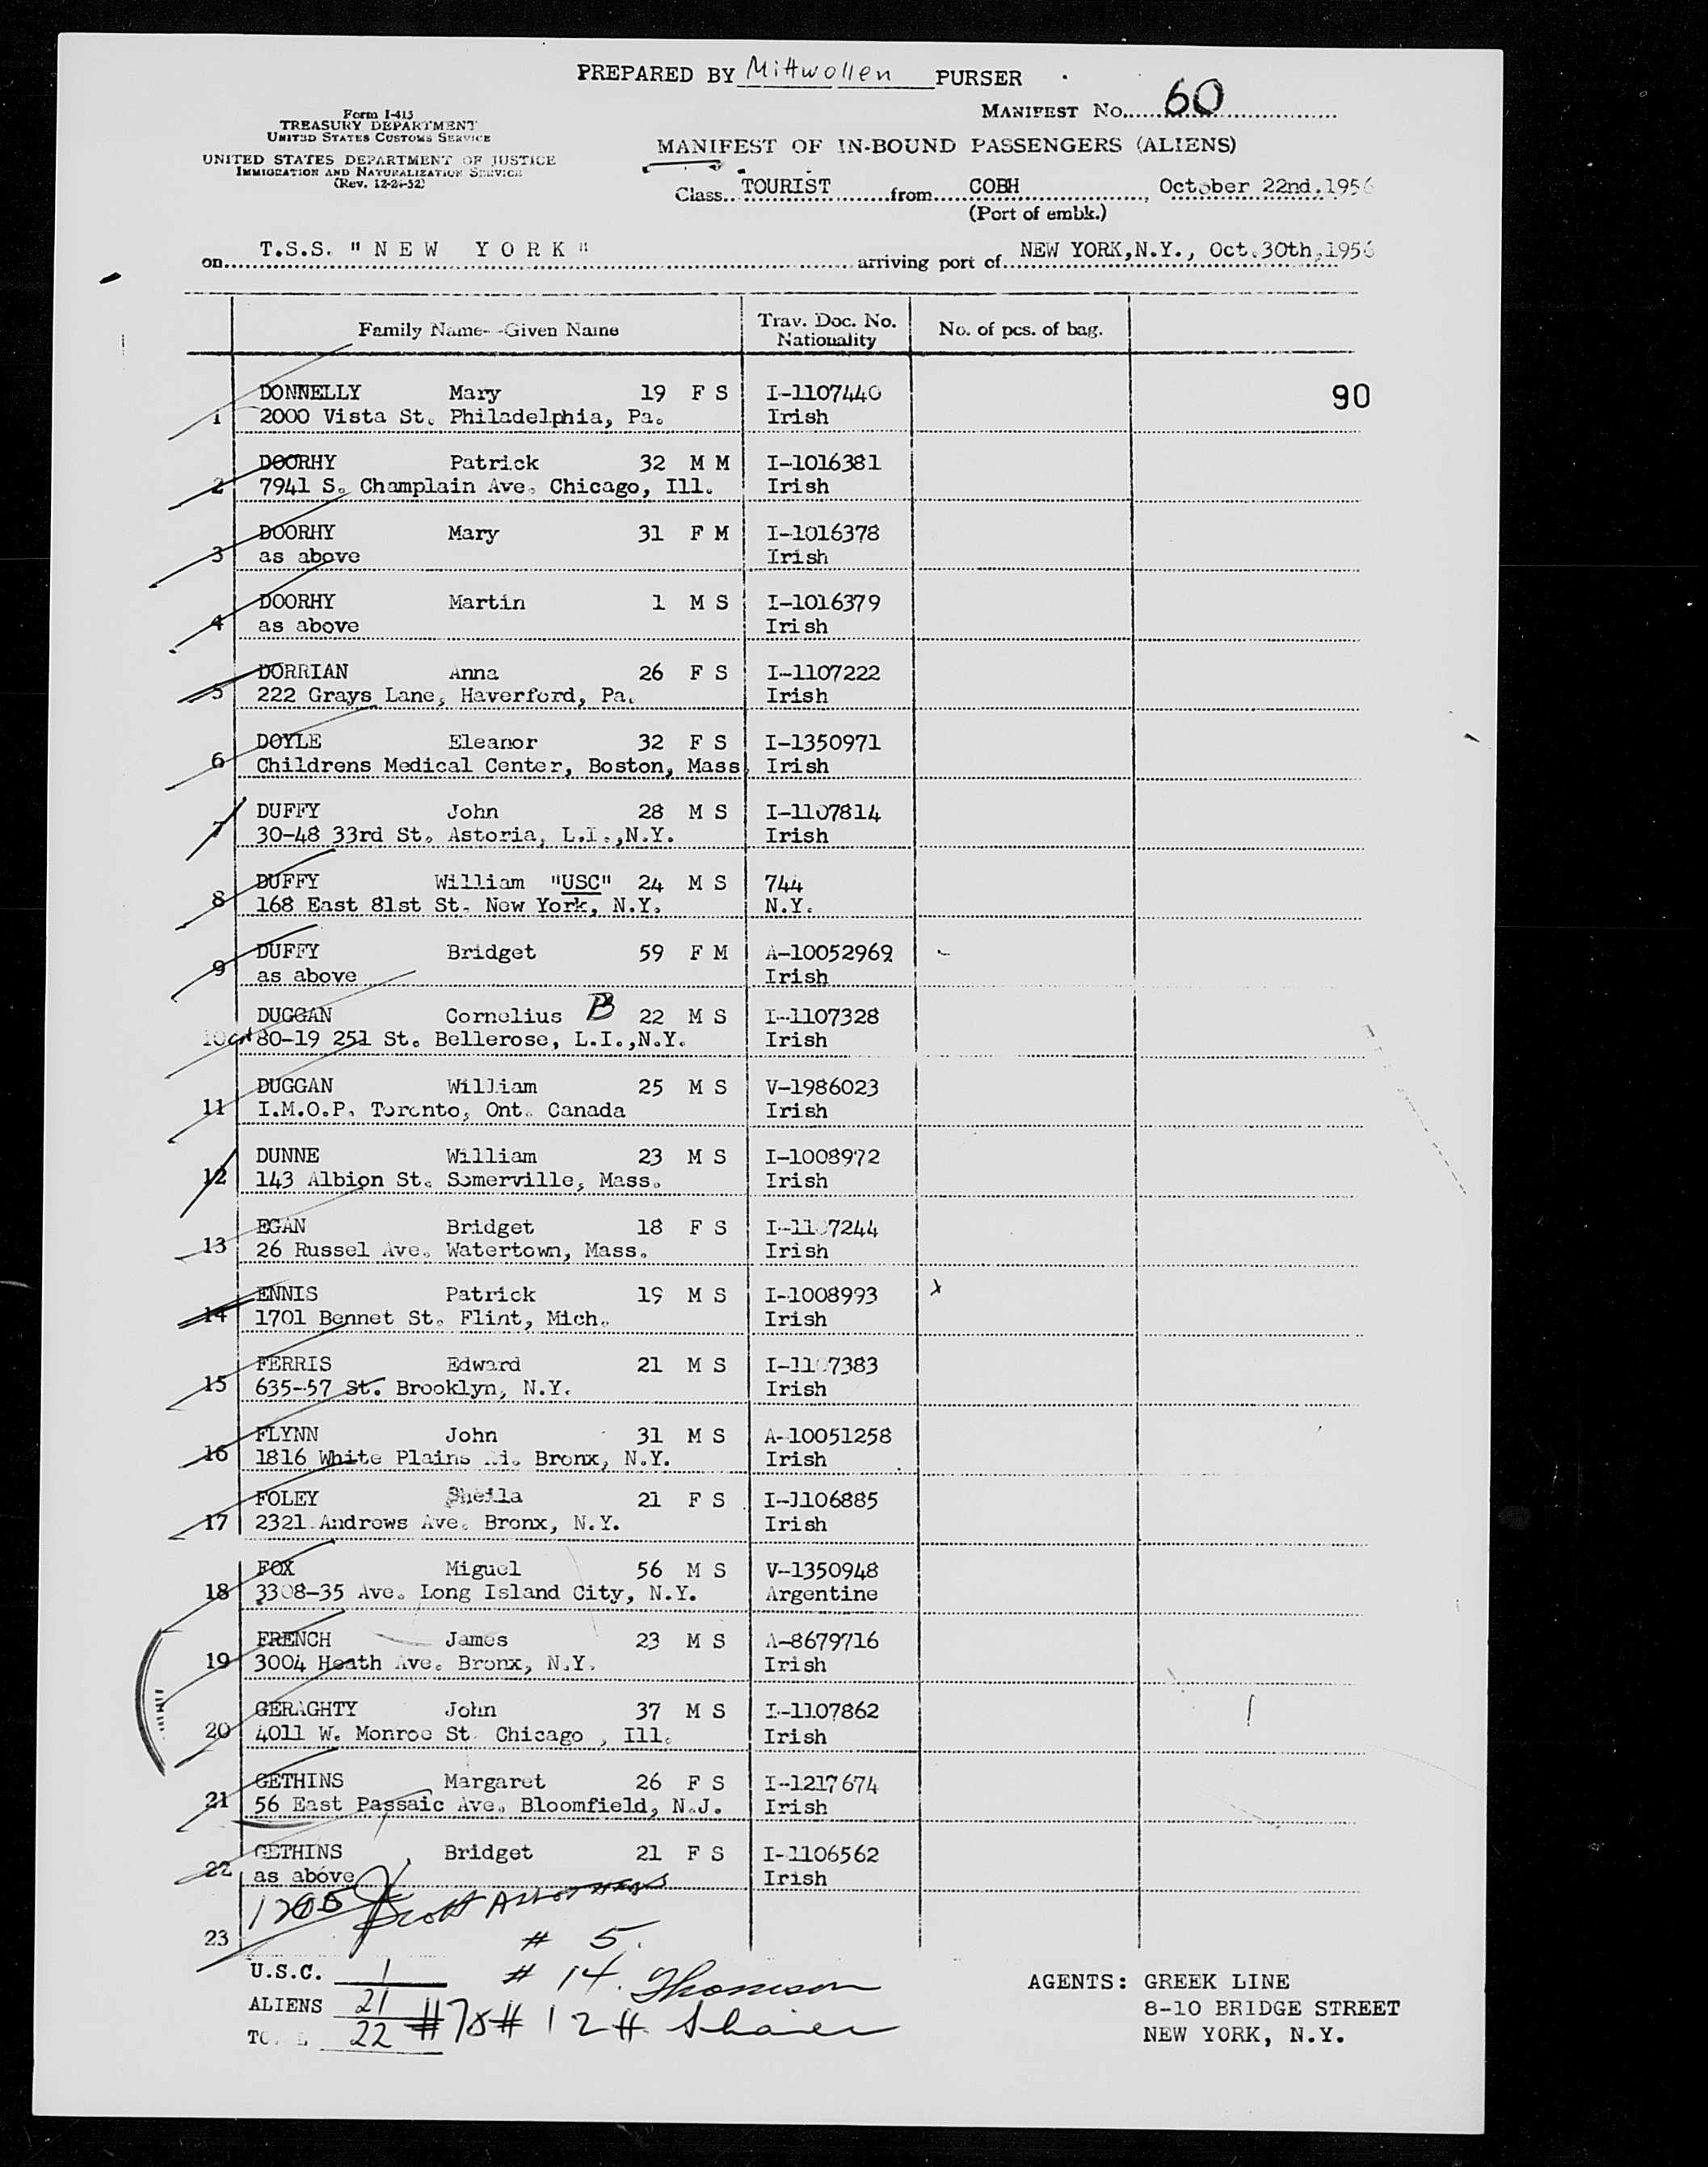 PREPARED BY Mittwollen PURSER
MANIFEST No. 60
Form I-415
TREASURY DEPARTMENT
UNITED STATES CUSTOMS SERVICE
UNITED STATES DEPARTMENT OF JUSTICE
IMMIGRATION AND NATURALIZATION SERVICE
(Rev. 12-24-52)
MANIFEST OF IN-BOUND PASSENGERS (ALIENS)
Class TOURIST from COBH, October 22nd, 1956
(Port of embk.)
on T.S.S. "NEW YORK" arriving port of NEW YORK, N.Y., Oct. 30th, 1956
Family Name--Given Name Trav. Doc. No. Nationality No. of pcs. of bag.
90
DONNELLY Mary 19 F S I-1107440
1 2000 Vista St. Philadelphia, Pa. Irish
DOORHY Patrick 32 M M I-1016381
2 7941 S. Champlain Ave. Chicago, Ill. Irish
DOORHY Mary 31 F M I-1016378
3 as above Irish
DOORHY Martin 1 M S I-1016379
4 as above Irish
DORRIAN Anna 26 F S I-1107222
5 222 Grays Lane, Haverford, Pa. Irish
DOYLE Eleanor 32 F S I-1350971
6 Childrens Medical Center, Boston, Mass Irish
DUFFY John 28 M S I-1107814
7 30-48 33rd St. Astoria, L.I.,N.Y. Irish
DUFFY William "USC" 24 M S 744
8 168 East 81st St. New York, N.Y. N.Y.
DUFFY Bridget 59 F M A-10052969
9 as above Irish
DUGGAN Cornelius B 22 M S I-1107328
10 80-19 251 St. Bellerose, L.I.,N.Y. Irish
DUGGAN William 25 M S V-1986023
11 I.M.O.P. Toronto, Ont. Canada Irish
DUNNE William 23 M S I-1008972
12 143 Albion St. Somerville, Mass. Irish
EGAN Bridget 18 F S I-1107244
13 26 Russel Ave. Watertown, Mass. Irish
ENNIS Patrick 19 M S I-1008993 x
14 1701 Bennet St. Flint, Mich. Irish
FERRIS Edward 21 M S I-1107383
15 635-57 St. Brooklyn, N.Y. Irish
FLYNN John 31 M S A-10051258
16 1816 White Plains Bronx, N.Y. Irish
FOLEY Sheila 21 F S I-1106885
17 2321 Andrews Ave. Bronx, N.Y. Irish
FOX Miguel 56 M S V-1350948
18 3308-35 Ave. Long Island City, N.Y. Argentine
FRENCH James 23 M S A-8679716
19 3004 Heath Ave. Bronx, N.Y. Irish
GERAGHTY John 37 M S I-1107862
20 4011 W. Monroe St. Chicago , Ill. Irish
GETHINS Margaret 26 F S I-1217674
21 56 East Passaic Ave. Bloomfield, N.J. Irish
GETHINS Bridget 21 F S I-1106562
22 as above Irish
23 # 5.
U.S.C. 1 # 14. Thomson
ALIENS 21
22 # 12 #
AGENTS: GREEK LINE
8-10 BRIDGE STREET
NEW YORK, N.Y.